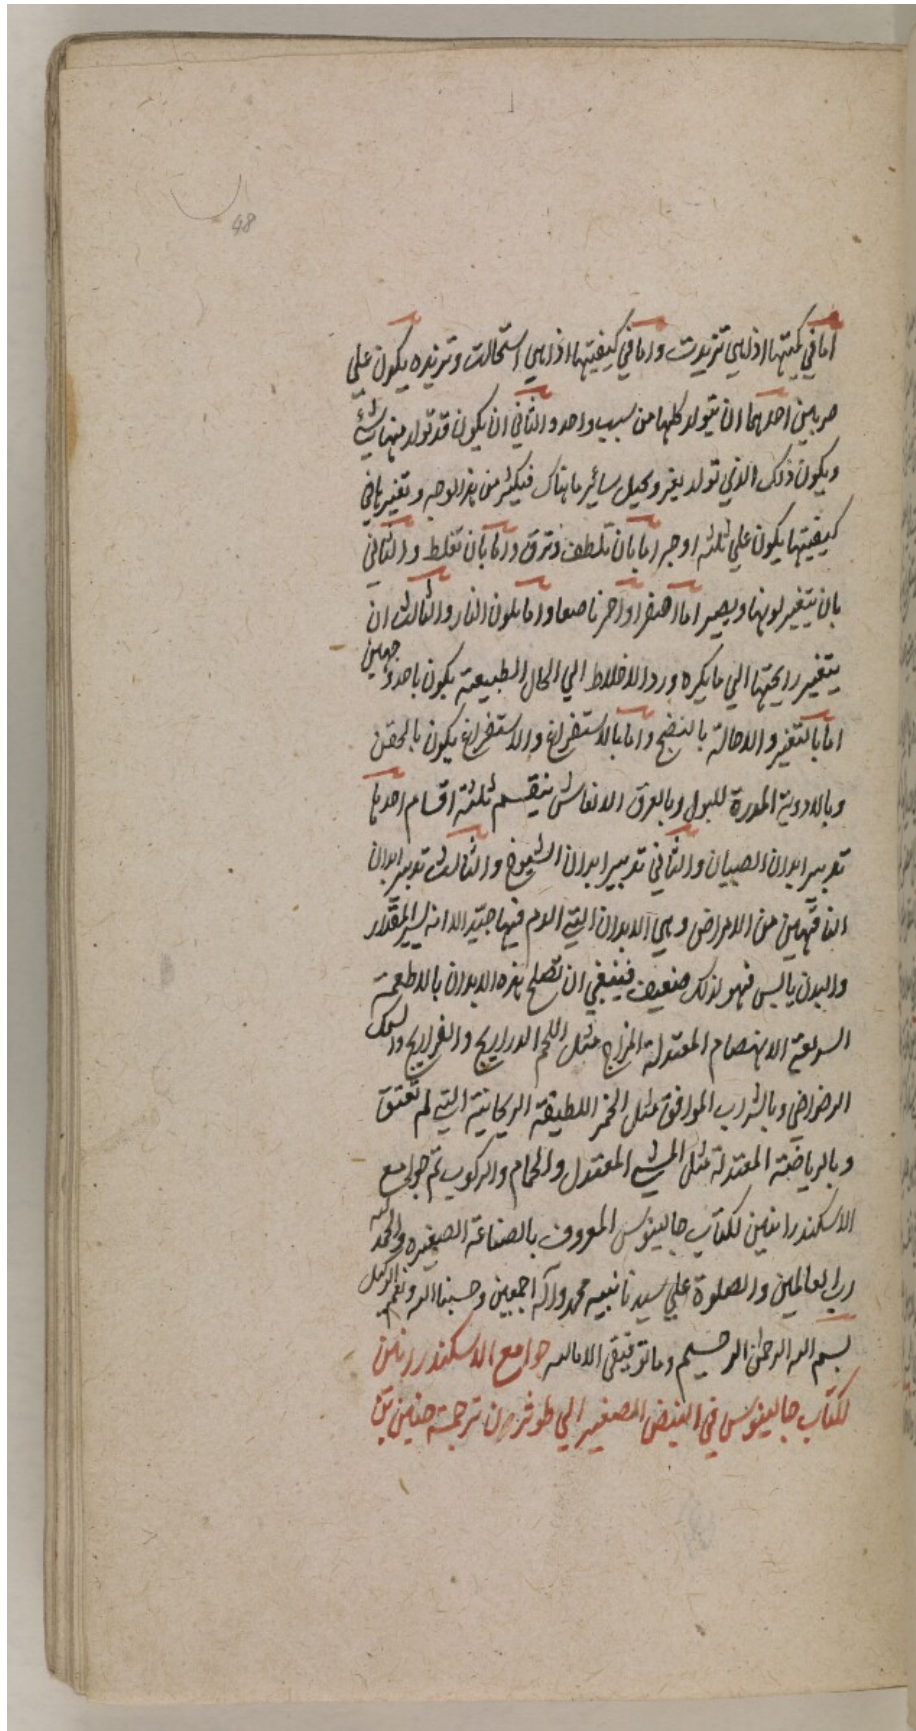 48
اما في كميتها اذا هي تزيدت واما في كيفيتها اذا هي استحالت وتزيده يكون علي
ضربين احدهما ان يتولد كلها من سبب واحد والثاني ان يكون قد تولد منها شئ
ويكون ذلك الذي تولد يغير ويحيل سائر ما هناك فيكثر من هذا الوجه وتغيرها في
كيفيتها يكون علي ثلثه اوجه اما بان تلطف وترق واما بان تغلظ والثاني
بان يتغير لونها ويصير اما اصفر او احمر ناصعا واما بلون النار والثالث ان
يتغير رايحتها الي ما يكره ورد الاخلاط الي الحال الطبيعية يكون باحد وجهين
اما بالتغير والاحالة بالنضج واما بالاستفراغ والاستفراغ يكون بالحقن
وبالادوية المدرة للبول وبالعرق الانعاش ينقسم ثلثة اقسام احدها
تدبير ابدان الصبيان والثاني تدبير ابدان الشيوخ والثالث تدبير ابدان
الناقهين من الامراض وهي الابدان التي الدم فيها جيد الا انه يسير المقدار
والبدن يابس فهو لذلك ضعيف فينبغي ان تصلح هذه الابدان بالاطعمة
السريعة الانهضام المعتدلة المزاج مثل اللحم الدراريج والفراريج والسمك
الرضراضي وبالشراب الموافق مثل الخمر اللطيفة الريحانية التي لم تعتق
وبالرياضة المعتدلة مثل المشي المعتدل والحمام والركوب تم جوامع
الاسكندرانيين لكتاب جالينوس المعروف بالصناعة الصغيره والحمد لله
رب العالمين والصلوة علي سيدنا نبيه محمد وآله اجمعين وحسبنا الله ونعم الوكيل
بسم الله الرحمن الرحيم وما توفيقي الا بالله جوامع الاسكندرانيين
لكتاب جالينوس في النبض الصغير الي طوثرن ترجمة حنين بن